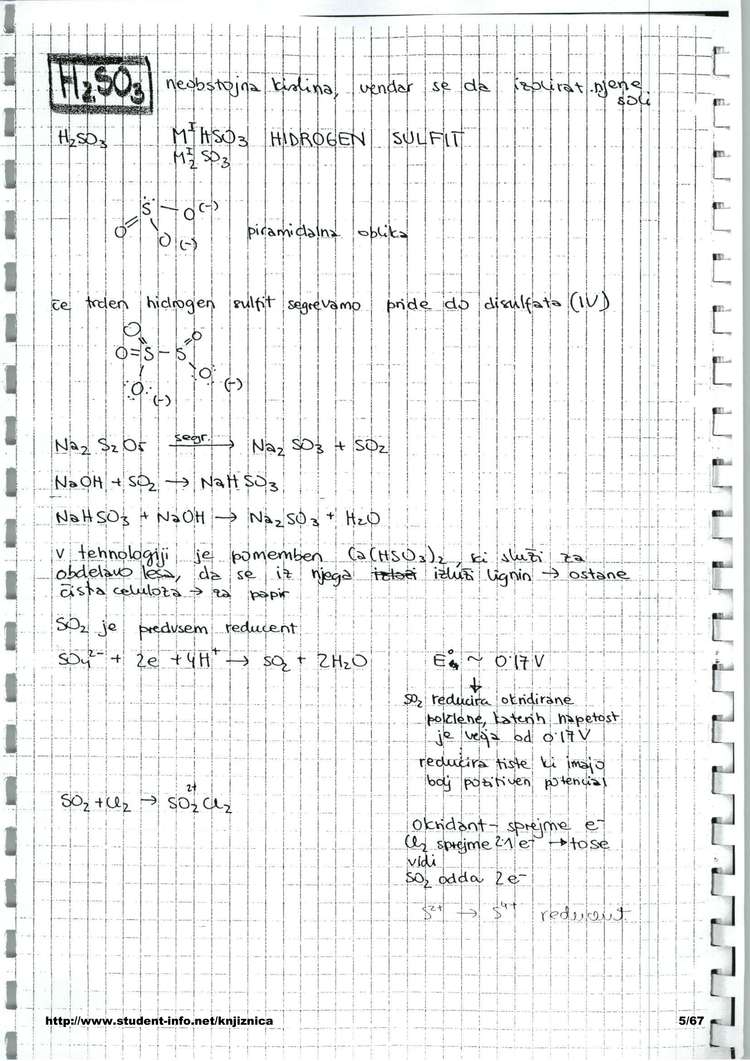 H₂SO₃ neobstojna kislina, vendar se da izolirat njene
soli
H₂SO₃ MᴵHSO₃ HIDROGEN SULFIT
M₂ᴵSO₃
S – O (-)
O O (-) piramidalna oblika
če trden hidrogen sulfit segrevamo pride do disulfata (IV)
O O
O=S–S
O (-) O (-)
Na₂S₂O₅ segr. → Na₂SO₃ + SO₂
NaOH + SO₂ → NaHSO₃
NaHSO₃ + NaOH → Na₂SO₃ + H₂O
V tehnologiji je pomemben Ca(HSO₃)₂, ki služi za
obdelavo lesa, da se iz njega izloči izluži lignin → ostane
čista celuloza → za papir
SO₂ je predvsem reducent
SO₄²⁻ + 2e + 4H⁺ → SO₂ + 2H₂O E° ~ 0'17 V
↓
SO₂ reducira oksidirane
polčlene, katerih napetost
je večja od 0'17 V
reducira tiste ki imajo
bolj pozitiven potencial
SO₂ + Cl₂ → SO₂²⁺Cl₂
Oksidant – sprejme e⁻
Cl₂ sprejme 2·1 e⁻ → to se
vidi
SO₂ odda 2e⁻
S²⁺ → S⁴⁺ reducent
http://www.student-info.net/knjiznica 5/67